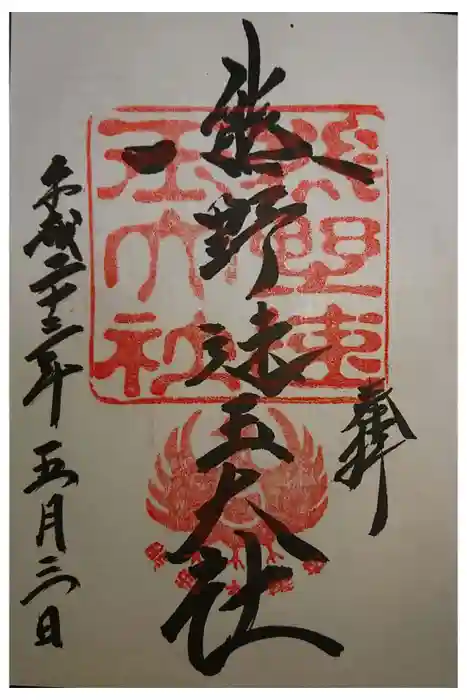 奉拝
熊野速玉大社
熊野速玉大社
平成二十三年 五月三日